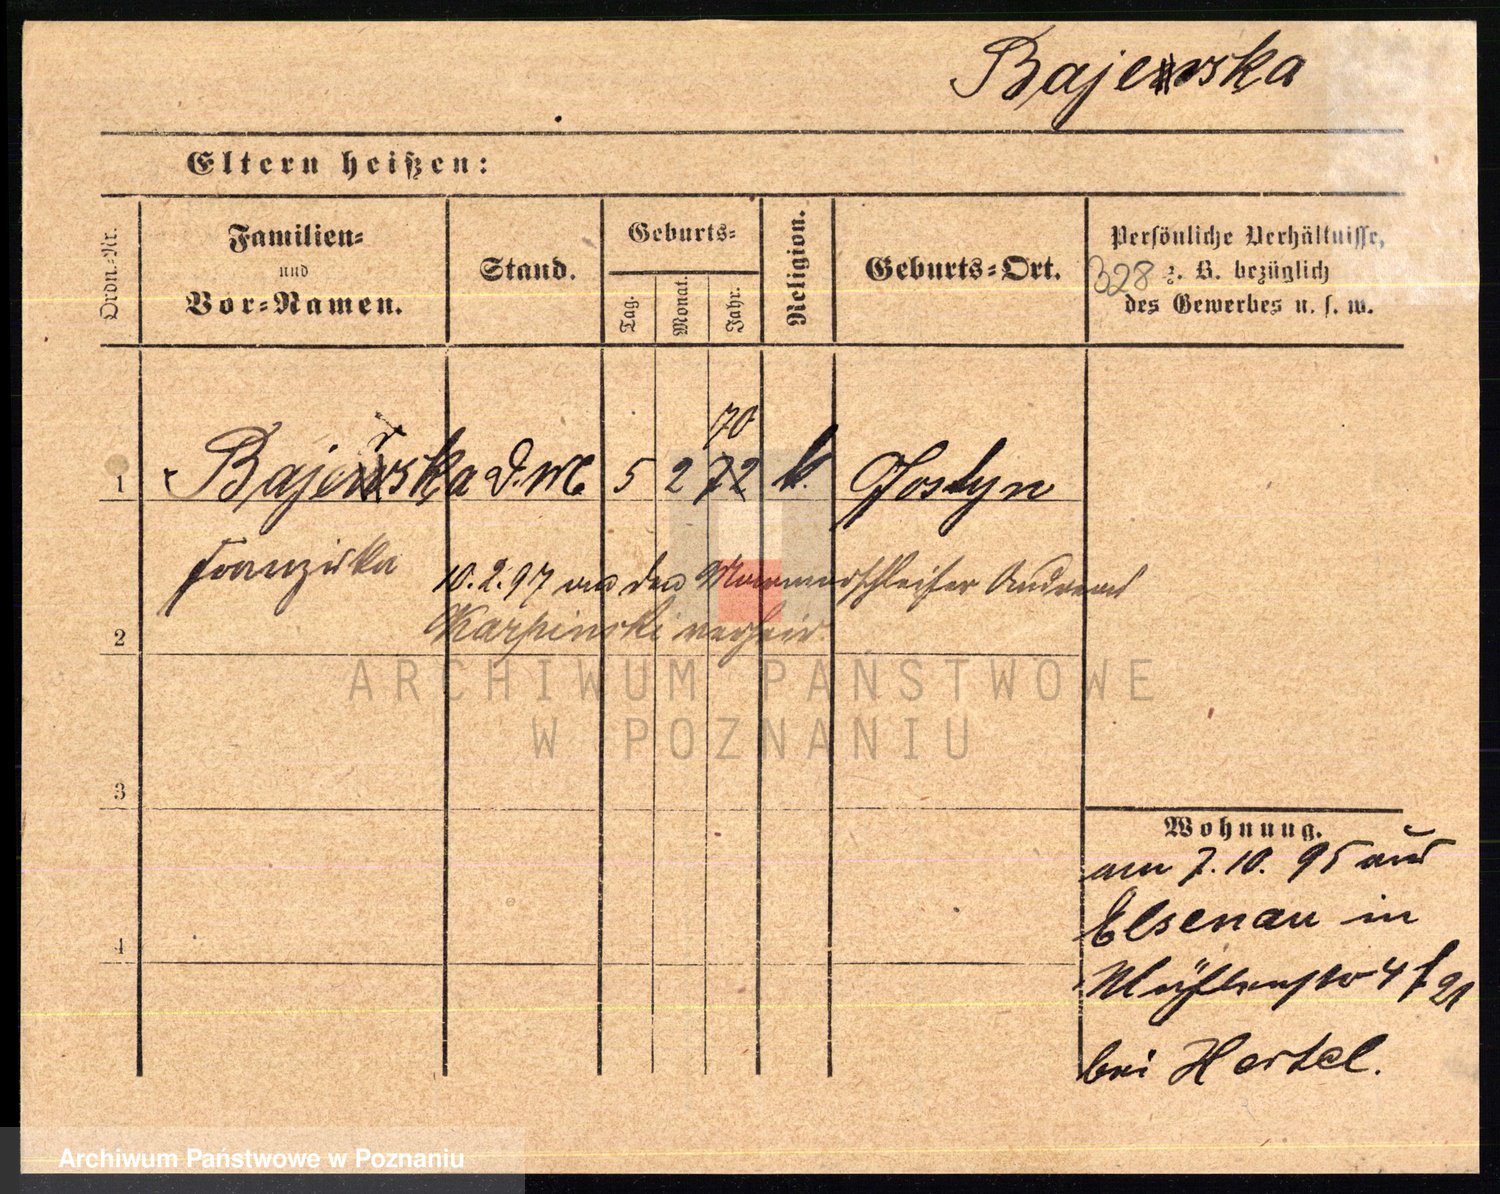 Bajerska
Eltern heißen:
Ordn.-Nr.
Familien-
und
Vor-Namen.
Stand.
Geburts-
Tag.
Monat.
Jahr.
Religion.
Geburts-Ort.
Persönliche Verhältnisse,
328 z. B. bezüglich
des Gewerbes u. s. w.
70
1 Bajerska D. M 5 2 72 k. Gostyn
Franziska
10.2.97 an den Marmorschleifer Andreas
Karpinski verheir.
2
ARCHIWUM PAŃSTWOWE
W POZNANIU
3
Wohnung.
am 7.10.95 aus
Elsenau in
4
Mühlenstr 4 f 21
bei Hertel.
Archiwum Państwowe w Poznaniu